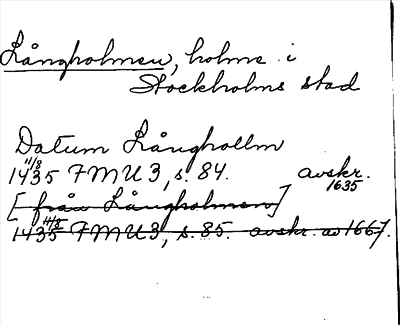 Långholmen, holme i
Stockholms stad
Datum Långhollm
11/8 1435 FMU 3, s. 84. avskr. 1635
[från Långholmen]
11/8 1435 FMU 3, s. 85. avskr. av 1667.